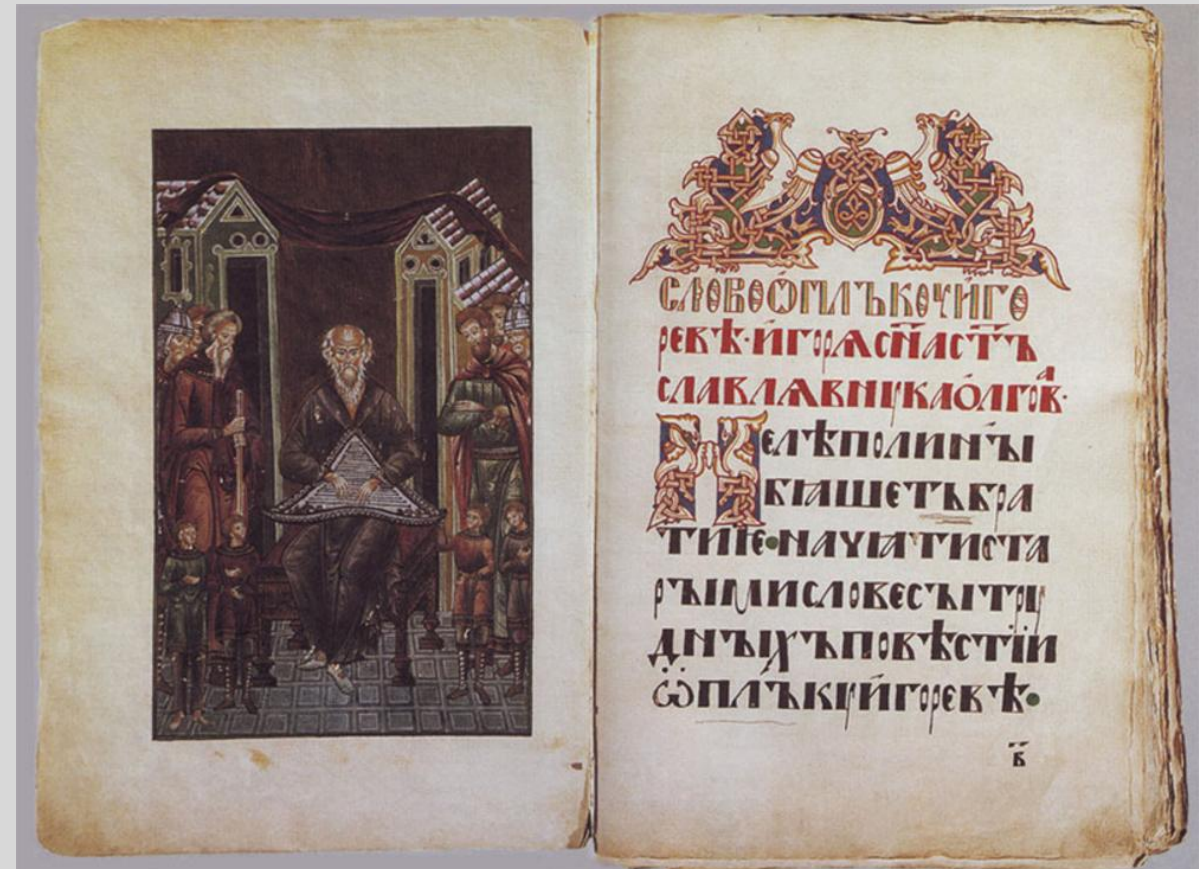 СЛОВОѠПЛЪКОУИГО
РЕВѢ·ИГОРѦСН҃АСТЪ
СЛАВЛѦВНУКАОЛГОВᲇ·
НЕЛѢПОЛИНЫ
БѦШЕТЬБРА
ТИѤ•НАЧѦТИСТА
РЫМИСЛОВЕСЫТРУ
ДНЫХЪПОВѢСТІИ
ѠПЛЪКУИГОРЕВѢ•
В҃